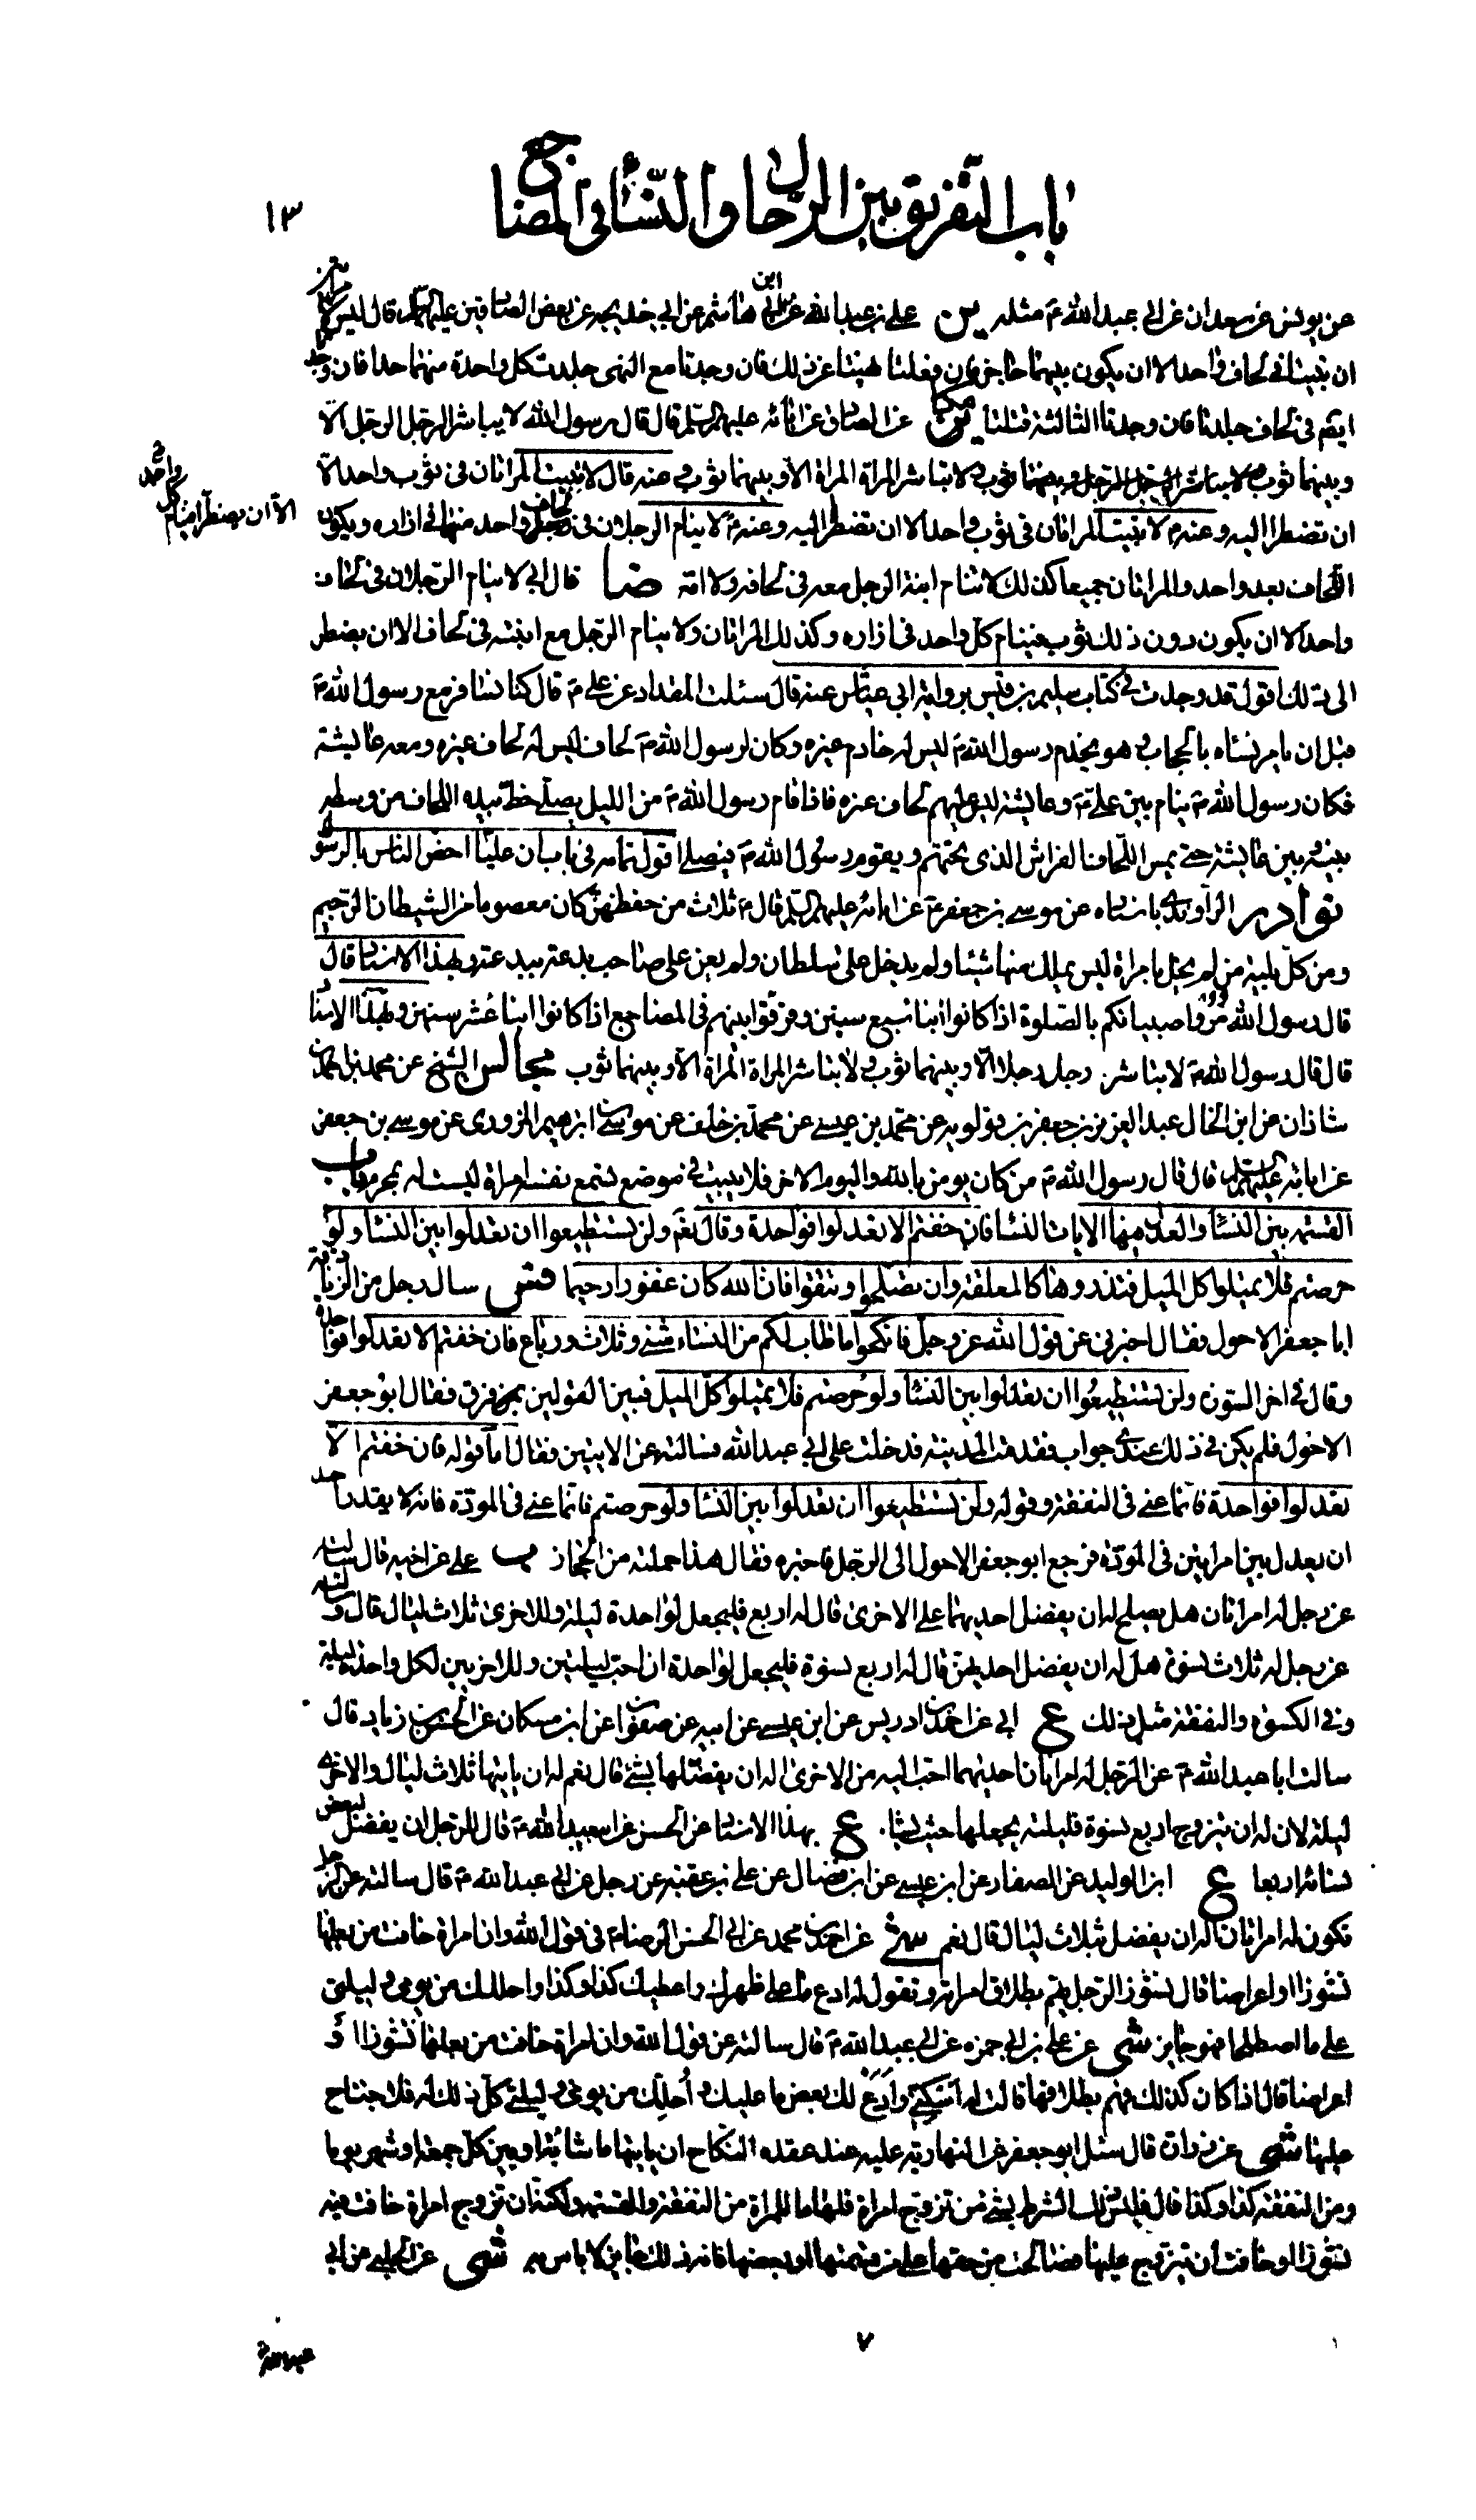 باب التفريق بين الرجال والنساء في المضاجع
١٣
عن يونس عن سعدان عن ابي عبد الله ع مثله ين علي بن عبد الله عن ابن ابي هاشم عن ابي خديجه عن بعض الصادقين عليهم السلام قال ليس
ان تبيتا في لحاف واحد الا ان يكون بينهما حاجز فان فعلتا نهيتا عن ذلك فان وجدتا مع النهى جلدت كل واحدة منهما حدا فان وجد
ايضم في لحاف جلدتا فان وجدتا الثالثة قتلتا عن الصادق عن ابائه عليهم السلم قال قال رسول الله لا يباشر الرجل الرجل الا
وبينهما ثوب ولا تباشر المراة المراة الا وبينهما ثوب وعنه قال لا تبيت المراتان في ثوب واحد الا
ان تضطرا اليه وعنه ع لا تبيت المراتان في ثوب واحد الا ان تضطرا اليه وعنه ع لا ينام الرجلان في لحاف واحد الا ان يضطرا فينام كل واحد منهما في ازاره ويكون
اللحاف بعد واحد والمراتان جميعا كذلك لا تنام ابنة الرجل معه في لحافه ولا امه ضا قال ابي لا ينام الرجلان في لحاف
واحد الا ان يكون دون ذلك ثوب فينام كل واحد في ازاره وكذلك المراتان ولا ينام الرجل مع ابنته في لحاف الا ان يضطر
الى ذلك اقول قد وجدت في كتاب سليم بن قيس برواية ابن ابي عياش عنه قال سئلت المقداد عن علي ع قال كنا نسافر مع رسول الله ص
قبل ان يامر نساه بالحجاب وهو يخدم رسول الله ص ليس له خادم غيره وكان لرسول الله ص لحاف ليس له لحاف غيره ومعه عايشة
فكان رسول الله ص ينام بين علي ع وعايشة ليس عليهم لحاف غيره فاذا قام رسول الله ص من الليل يصلي حط بيده اللحاف من وسطه
بينه وبين عايشة حتى يمس اللحاف الفراش الذى تحتهم ويقوم رسول الله ص فيصلي اقول تمامه في باب ان عليا اخص الناس بالرسول
نوادر الراوندي باسناده عن موسى بن جعفر ع عن ابائه عليهم السلم قال ع ثلاث من حفظهن كان معصوما من الشيطان الرجيم
ومن كل بلية من لم يخل بامراة ليس يملك منها شيئا ولم يدخل على سلطان ولم يعن على صاحب بدعة ببدعته وبهذا الاسناد قال
قال رسول الله ص مروا صبيانكم بالصلوة اذا كانوا ابنا سبع سنين وفرقوا بينهم في المضاجع اذا كانوا ابنا عشر سنين وبهذا الاسناد
قال قال رسول الله ص لا يباشر رجل رجلا الا وبينهما ثوب ولا تباشر المراة المراة الا وبينهما ثوب مجالس الشيخ عن محمد بن احمد بن
شاذان عن ابن الخال عبد العزيز بن جعفر بن قولويه عن محمد بن عيسى عن محمد بن خلف عن موسى بن ابرهيم المروزى عن موسى بن جعفر
عن ابائه عليهم السلم قال قال رسول الله ص من كان يومن بالله واليوم الاخر فلا يبيت في موضع تسمع نفسه امراة ليست له بمحرم باب
القسمة بين النساء والعدل بينها الايات النساء فان خفتم الا تعدلوا فواحدة وقال تعم ولن تستطيعوا ان تعدلوا بين النساء ولو
حرصتم فلا تميلوا كل الميل فتذروها كالمعلقة وان تصلحوا وتتقوا فان الله كان غفورا رحيما فس سال رجل من الزنادقة
ابا جعفر الاحول فقال اخبرني عن قول الله عز وجل فانكحوا ما طاب لكم من النساء مثنى وثلاث ورباع فان خفتم الا تعدلوا فواحدة
وقال في اخر السورة ولن تستطيعوا ان تعدلوا بين النساء ولو حرصتم فلا تميلوا كل الميل فبين القولين فرق فقال ابو جعفر
الاحول فلم يكن في ذلك عندي جواب فقدمت المدينة فدخلت على ابي عبد الله فسالته عن الايتين فقال اما قوله فان خفتم الا
تعدلوا فواحدة فانما عنى في النفقة وقوله ولن تستطيعوا ان تعدلوا بين النساء ولو حرصتم فانما عنى في المودة فانه لا يقدر احد
ان يعدل بين امراتين في المودة فرجع ابو جعفر الاحول الى الرجل فاخبره فقال هذا حملته من الحجاز ب علي عن اخيه قال سالته
عن رجل له امراتان هل يصلح له ان يفضل احديهما على الاخرى قال له اربع فليجعل لواحدة ليلة وللاخرى ثلاث ليال قال وسالته
عن رجل له ثلاث نسوة هل له ان يفضل احديهن قال له اربع نسوة فليجعل لواحدة ان احب ليلتين وللاخريين لكل واحدة ليلة
وفي الكسوة والنفقة مثل ذلك ع ابي عن احمد بن ادريس عن ابن عيسى عن ابيه عن صفوان عن ابن مسكان عن الحسن بن زياد قال
سالت ابا عبد الله ع عن الرجل له امراتان احديهما احب اليه من الاخرى اله ان يفضلها بشئ قال نعم له ان ياتيها ثلاث ليال والاخرى
ليلة لان له ان يتزوج اربع نسوة فليلتيه يجعلها حيث يشا. ع بهذا الاسناد عن الحسن عن ابي عبد الله ع قال للرجل ان يفضل بعض
نسائه اربعا ع ابن الوليد عن الصفار عن ابن عيسى عن ابن فضال عن علي بن عقبة عن رجل عن ابي عبد الله ع قال سالته عن الرجل
تكون له امراتان اله ان يفضل ثلاث ليال قال نعم شى عن احمد بن محمد عن ابي الحسن الرضا ع في قول الله وان امراة خافت من بعلها
نشوزا او اعراضا قال نشوز الرجل يهم بطلاق امراته وتقول له ادع ما على ظهرك واعطيك كذا وكذا واحللك من يومي وليلتي
على ما اصطلحا فهو جايز شى عن علي بن ابي حمزه عن ابي عبد الله ع قال سالته عن قول الله وان امراة خافت من بعلها نشوزا او
اعراضا قال اذا كان كذلك فهم بطلاقها قالت له امسكني وادع لك بعض ما عليك واحلك من يومي وليلتي كل ذلك له فلا جناح
عليهما شى عن زرارة قال سئل ابو جعفر عن النهارية عليه عند عقده النكاح ان ياتيها ما شاء نهارا وبين كل جمعة او شهر يوما
ومن النفقة كذا وكذا قال فليس ذلك الشرط بشئ من تزوج امراة فلها ما للمراة من النفقة والقسمة ولكنه ان تزوج امراة خافت منه
نشوزا او خافت ان يتزوج عليها فصالحت من حقها على شئ من قسمتها او بعضها فان ذلك جايز لا باس به شى عن الحلبي عن ابي
٧
عبد الله ع